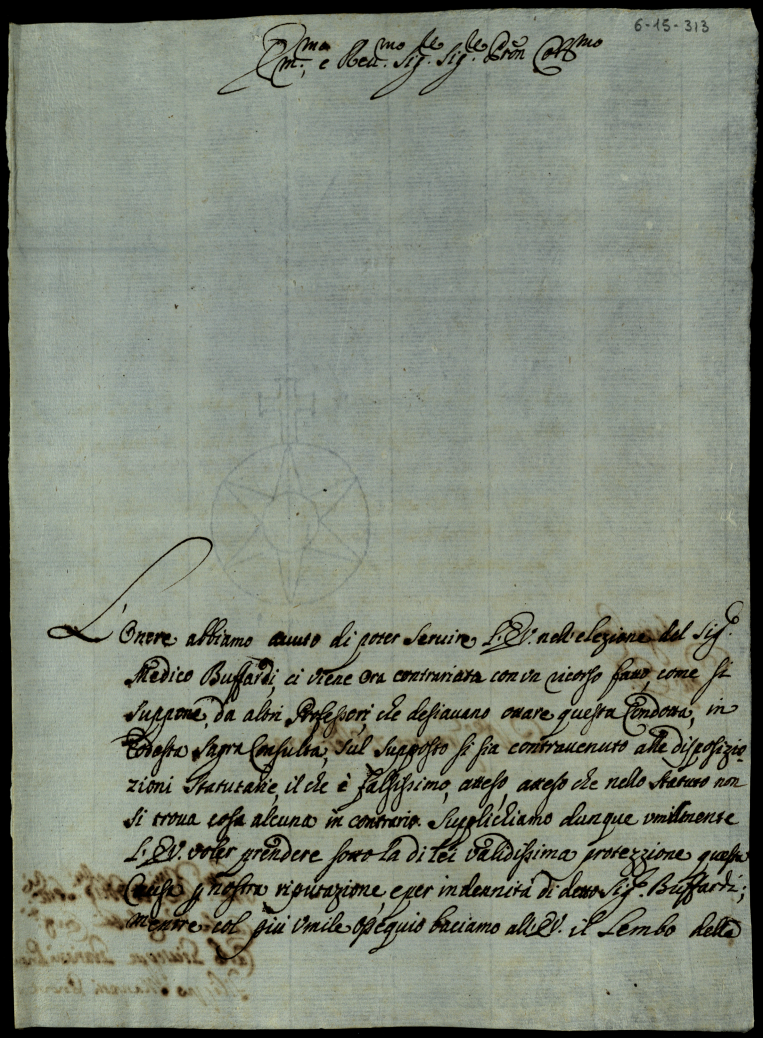 6-15-313
Em.mo e Reu.mo Sig.re Sig.re Pron Col.mo
L'Onore abbiamo auuto di poter seruire l'E.V. nell'elezione del Sig.r
Medico Buffardi, ci viene ora contrariata con vn ricorso fatto, come si
suppone, da altri Professori, che desiauano ottare questa Condotta, in
Codesta Sagra Consulta, sul supposto si sia contrauenuto alle disposizio-
zioni Statutarie, il che è falsissimo, atteso, atteso che nello Statuto non
si troua cosa alcuna in contrario. Supplichiamo dunque vmilmente
l'E.V. voler prendere sotto la di lei validissima protezzione questa
Causa p nostra riputazione, e per indennità di detto Sig.r Buffardi;
mentre col più vmile ossequio baciamo all'E.V. il Lembo della